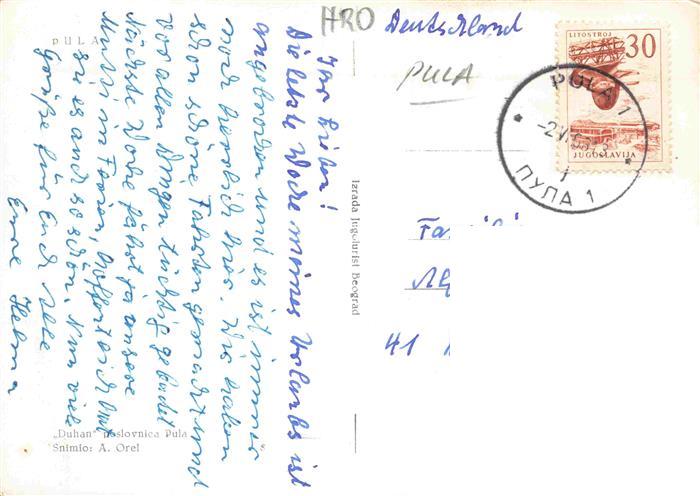 PULA
Ihr Lieben!
Die letzte Woche meines Urlaubs ist
angebrochen und es ist immer
noch herrlich hier. Wir haben
schon schöne Fahrten gemacht und
vor allen Dingen tüchtig gebadet
Nächste Woche fährt ja unsere
Mutti in Ferien, hoffentlich hat
sie es auch so schön. Nun viele
Grüße für Euch alle
Eure Helma
„Duhan" poslovnica Pula
Snimio: A. Orel
Izrada Jugoturist Beograd
HRO
Deutschland
PULA
LITOSTROJ
30
JUGOSLAVIJA
PULA 1
ПУЛА 1
Fa
41